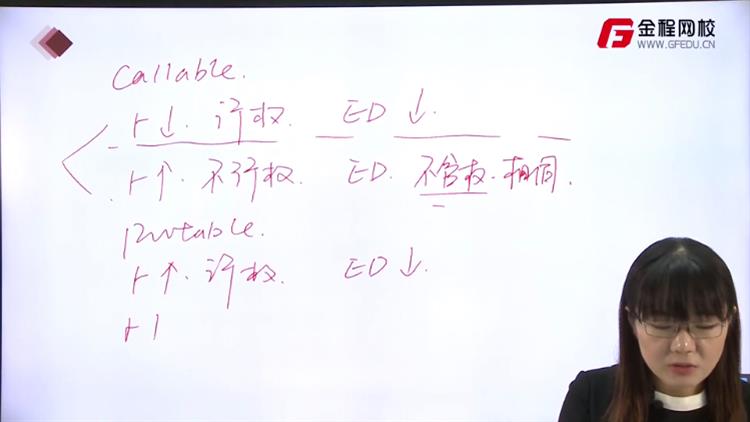 金程网校
WWW.GFEDU.CN
Callable.
r↓. 行权. ED ↓.
r↑. 不行权. ED. 不含权. 相同.
putable.
r↑. 行权. ED ↓.
r